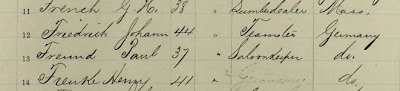 11 French G. H. 38 " Lumberdealer Mass.
12 Friedrich Johann 44 " Teamster Germany
13 Freund Paul 37 " Saloonkeeper do.
14 Frenke Henry 41 " do.